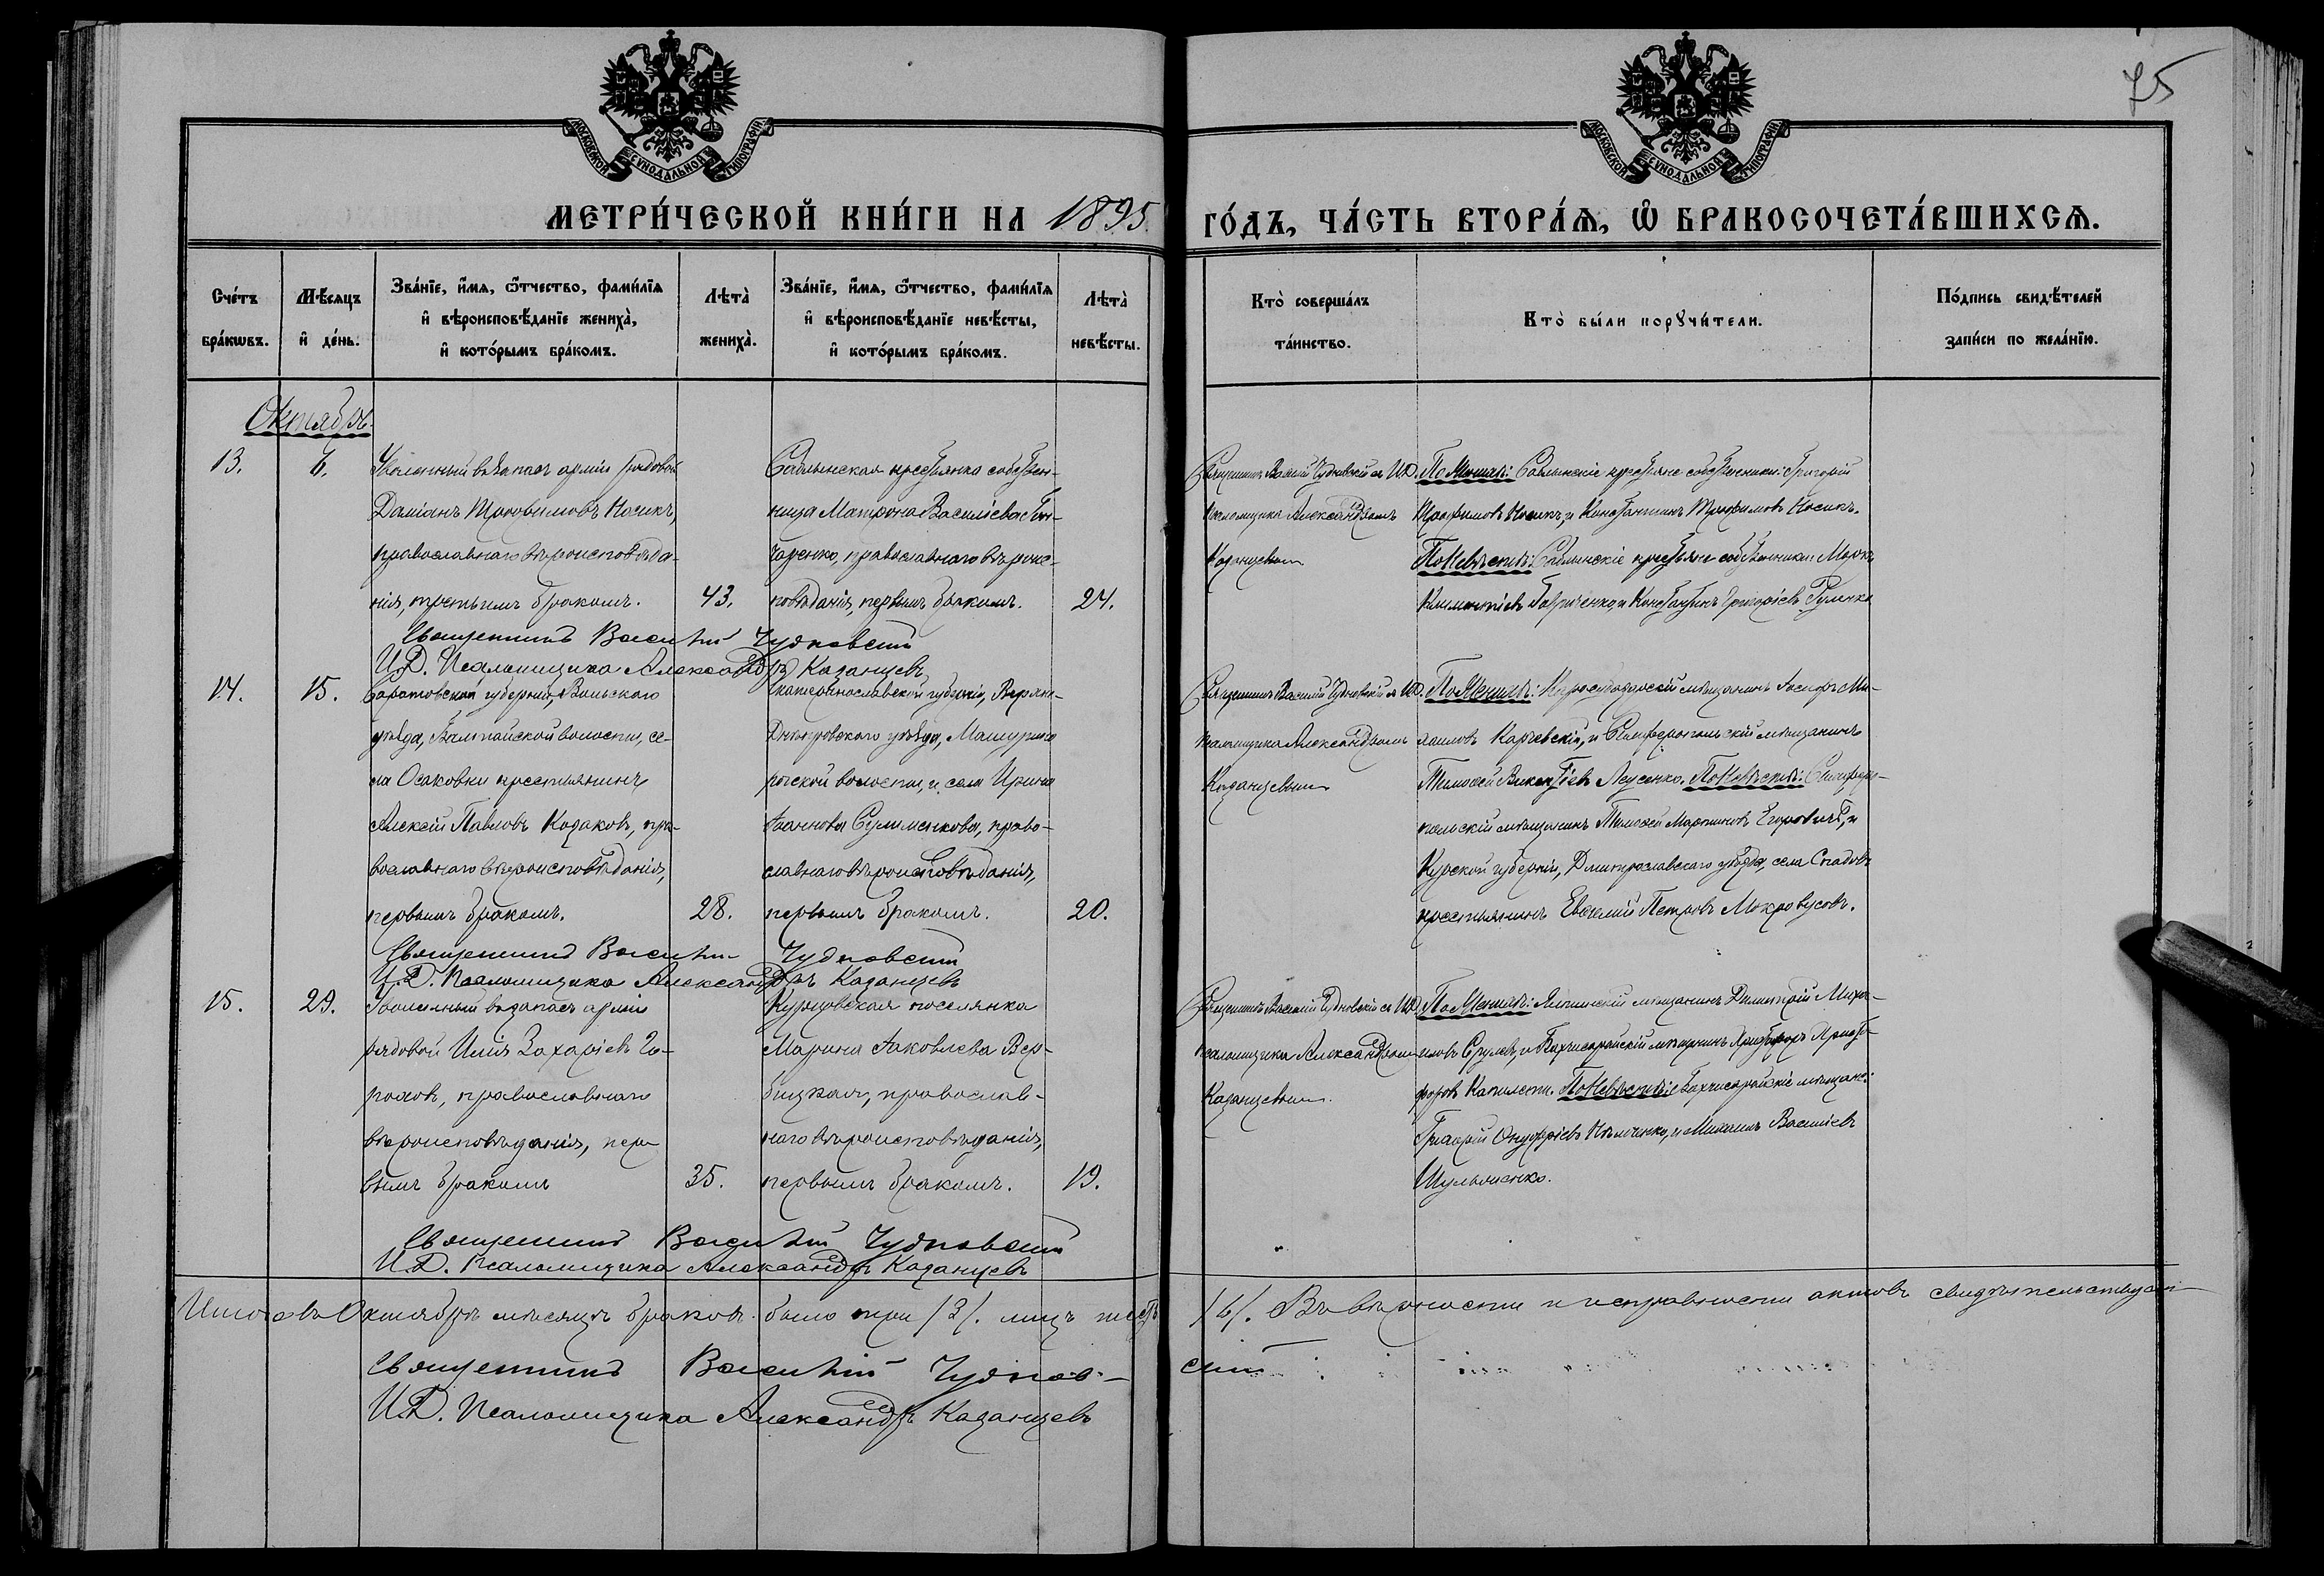 75
МОСКОВСКОЙ СѴНОДАЛЬНОЙ ТИПОГРАФІИ
МОСКОВСКОЙ СѴНОДАЛЬНОЙ ТИПОГРАФІИ
МЕТРИ́ЧЕСКОЙ КНИ́ГИ НА 1895
ГО́ДЪ, ЧА́СТЬ ВТОРА́Ѧ, Ѡ БРАКОСОЧЕТА́ВШИХСѦ.
Сче́тъ бра́кѡвъ.
Мѣ́сѧцъ и де́нь.
Зва́нїе, и́мѧ, ѿтчество, фами́лїѧ и вѣроисповѣ́данїе жениха̀, и кото́рымъ бра́комъ.
Лѣта̀ жениха̀.
Зва́нїе, и́мѧ, ѿтчество, фами́лїѧ и вѣроисповѣ́данїе невѣ́сты, и кото́рымъ бра́комъ.
Лѣта̀ невѣ́сты.
Кто̀ соверша́лъ та́инство.
Кто̀ бы́ли порꙋчи́тели.
По́дпись свидѣ́телей за́писи по жела́нїю.
Октябрь
13.
6.
Уволенный въ запасъ арміи рядовой
Даміанъ Трофимовъ Носикъ,
православнаго вѣроисповѣда-
нія, третьимъ бракомъ.
43.
Саблынская крестьянка собствен-
ница Матрона Васильева Гон-
чаренко, православнаго вѣроис-
повѣданія, первымъ бракомъ.
24.
Священникъ Василій Чудновскій съ И.Д.
псаломщика Александромъ
Казанцевымъ
По Женихѣ: Саблынскіе крестьяне собственники: Григорій
Трофимовъ Носикъ, и Константинъ Трофимовъ Носикъ.
По Невѣстѣ: Саблынскіе крестьяне собственники: Марко
Климентіевъ и Константинъ Григоріевъ
Священникъ Василій Чудновскій
И.Д. Псаломщика Александръ Казанцевъ
14.
15.
Саратовской губерніи, Вольскаго
уѣзда, Балтайской волости, се-
ла Осаковки крестьянинъ
Алексій Павловъ Казаковъ, пра-
вославнаго вѣроисповѣданія,
первымъ бракомъ.
28.
Екатеринославской губерніи, Верхне-
Днѣпровскаго уѣзда,
волости, и села Ирина
Іоаннова православ-
славнаго вѣроисповѣданія,
первымъ бракомъ.
20.
Священникъ Василій Чудновскій съ И.Д.
псаломщика Александромъ
Казанцевымъ
По Женихѣ: мѣщанинъ Іосифъ Ми-
хаиловъ Карчевскій, и Симферопольскій мѣщанинъ
Тимофей Викентіевъ По Невѣстѣ: Симферо-
польскій мѣщанинъ Тимофей Мартиновъ Егоровичъ, и
Курской губерніи, Дмитрославскаго уѣзда, села
крестьянинъ Евфимій Петровъ Мокроусовъ.
Священникъ Василій Чудновскій
И.Д. Псаломщика Александръ Казанцевъ
15.
29.
Уволенный въ запасъ арміи
рядовой Илія Захаріевъ Го-
роховъ, православнаго
вѣроисповѣданія, пер-
вымъ бракомъ
35.
Курцовская поселянка
Марина Іаковлева Вер-
бицкая, православ-
наго вѣроисповѣданія,
первымъ бракомъ.
19.
Священникъ Василій Чудновскій съ И.Д.
псаломщика Александромъ
Казанцевымъ.
По Женихѣ: мѣщанинъ Димитрій Миха-
иловъ и Бахчисарайскій мѣщанинъ Христофоръ Христо-
форовъ По Невѣстѣ: Бахчисарайскіе мѣщане:
Григорій Онуфріевъ и Михаилъ Васильевъ
Шульженко.
Священникъ Василій Чудновскій
И.Д. Псаломщика Александръ Казанцевъ
Итого въ Октябрѣ мѣсяцѣ браковъ было три /3/. лицъ шесть
/6/. Въ вѣрности и исправности актовъ свидѣтельствуемъ
Священникъ Василій Чуднов-
скій
И.Д. Псаломщика Александръ Казанцевъ